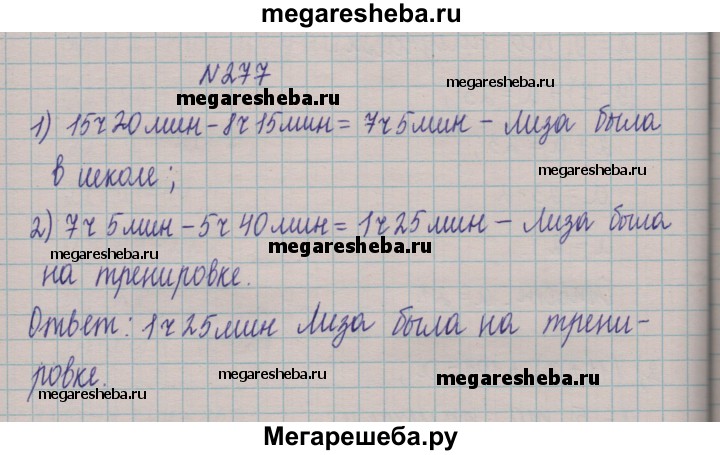 megaresheba.ru
N277
megaresheba.ru
megaresheba.ru
1) 15ч 20 мин - 8ч 15 мин = 7ч 5 мин - Лиза была
в школе;
megaresheba.ru
2) 7ч 5 мин - 5ч 40 мин = 1ч 25 мин - Лиза была
megaresheba.ru
megaresheba.ru
на тренировке.
Ответ: 1ч 25 мин Лиза была на трени-
ровке.
megaresheba.ru
megaresheba.ru
megaresheba.ru
Мегарешеба.ру